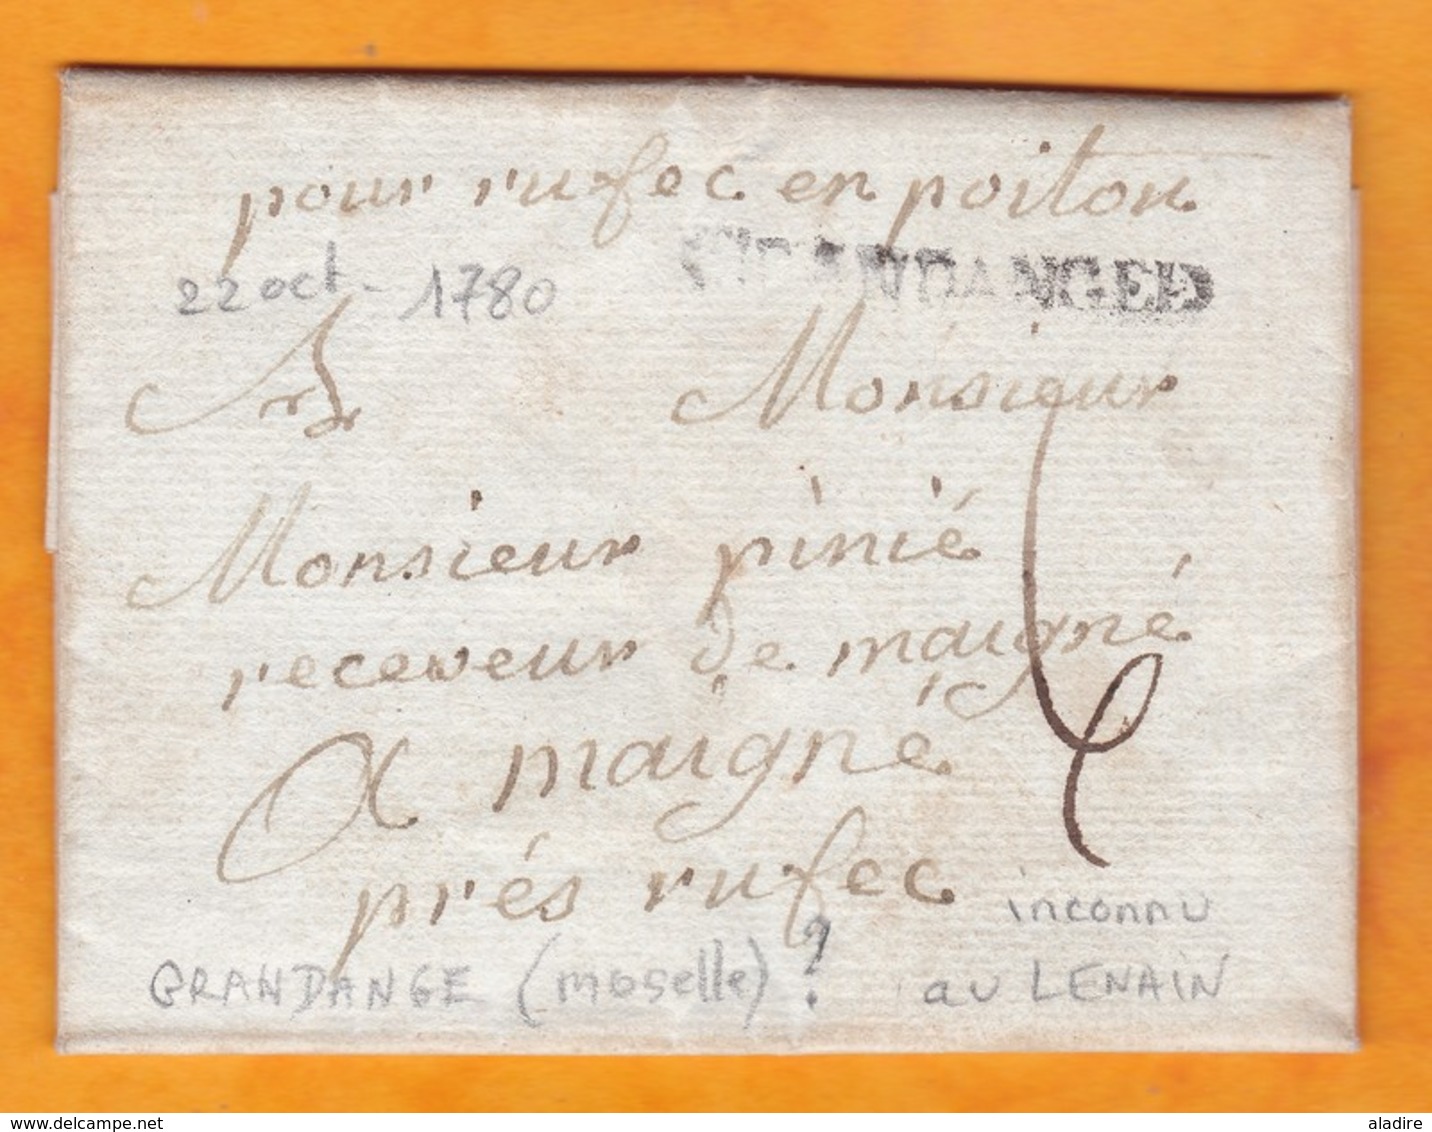 pour rufec en poitou
22 oct - 1780
Monsieur
Monsieur pinié
receveur de maigné
A maigné
prés rufec
inconnu
GRANDANGE (moselle)? au LENAIN
www.delcampe.net
aladire